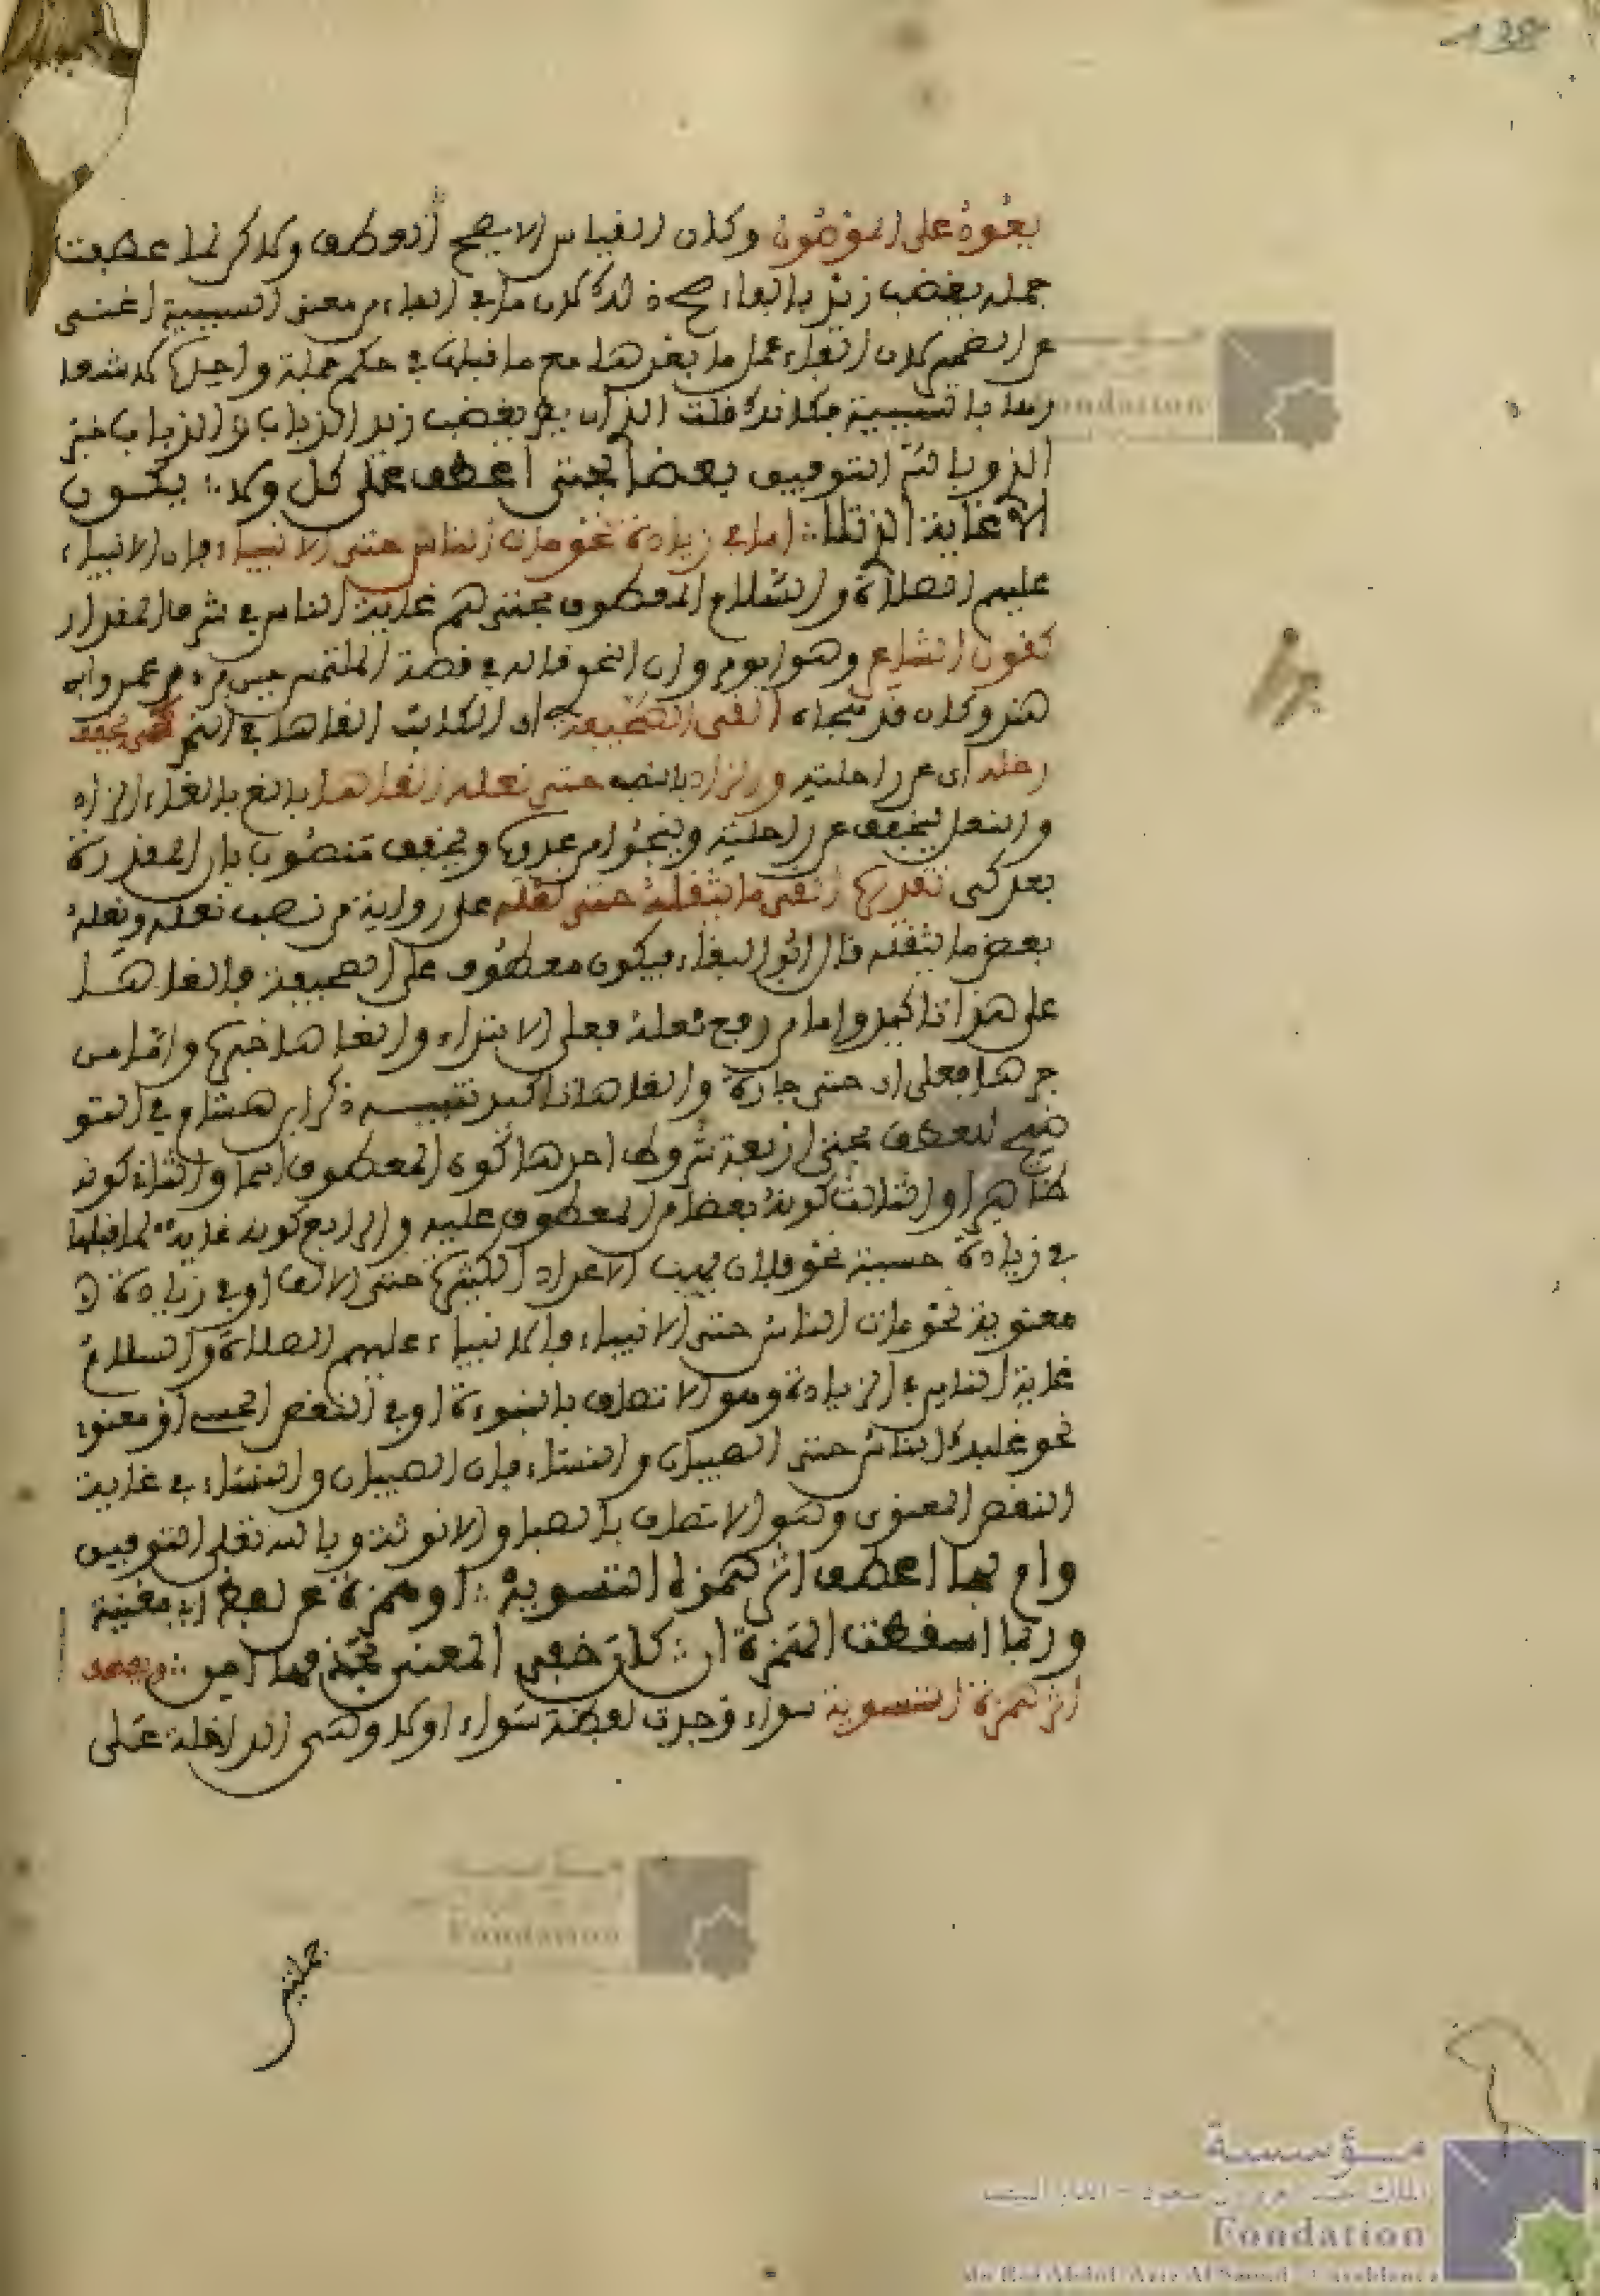 يعود على الموصول وكان القياس لا يصح العطف ولاكن لما عطفت
جملة يغضب زيد بالفاء صح ذلك لان ما في الفاء من معنى السببية اغنى
عن الضمير لان الفاء تجعل ما بعدها مع ما قبلها في حكم جملة واحدة لاشعا
رها بالسببية فكانك قلت الذي ان يطر يغضب زيد الذباب والذباب خبر
الذي وبالله التوفيق بعضا بحتى اعطف على كل ولا ∴ يكون
الا غاية الذي تلا ∴ اما في زيادة نحو مات الناس حتى الانبياء فان الانبياء
عليهم الصلاة والسلام المعطوف بحتى هم غاية الناس في شرف المقدار
كقول الشاعر وهو ابو مروان النحوي قاله في قصة المتلمس حين فر من عمرو ابن
هند وكان قد هجاه القى الصحيفة اي الكتاب القاها في النهر كي يخفف
رحله اي عن راحلته والزاد بالنصب حتى نعله القاها بالغ بالقاء الزاد
والنعل ليخفف عن راحلته وينجوا من عدوه ويخفف منصوب بان المقدرة
بعد كي تقديره القى ما يثقله حتى نعله على رواية من نصب نعله ونعله
بعض ما يثقله قال ابو البقاء فيكون معطوف على الصحيفة والقاها
على هذا تاكيد واما من رفع نعله فعلى الابتداء والقاها خبره واما من
جرها فعلى ان حتى جارة والقاها تاكيد تنبيه ذكر ابن هشام في التو
ضيح للعطف بحتى اربعة شروط احدها كون المعطوف اسما والثاني كونه
ظاهرا والثالث كونه بعضا من المعطوف عليه والرابع كونه غاية لما قبلها
في زيادة حسية نحو فلان يهب الاعداد الكثيرة حتى الالف او في زيادة
معنوية نحو مات الناس حتى الانبياء فالانبياء عليهم الصلاة والسلام
غاية الناس في الزيادة وهو الاتصاف بالنبوءة او في النقص الحسي او معنوي
نحو غلبك الناس حتى الصبيان والنساء فان الصبيان والنساء في غاية
النقص المعنوي وهو الاتصاف بالصبا والانوثة وبالله تعلى التوفيق
وام بها اعطف اثر همزة التسوية ∴ او همزة عن لفظ اي مغنية
وربما اسقطت الهمزة ان ∴ كان خفى المعنى بحذفها امن ∴
اثر همزة التسوية سواء وجدت لفظة سواء او لا وهي الداخلة على
جملتين
مؤسسة
Fondation
du Roi Abdul-Aziz Al Saoud - Casablanca